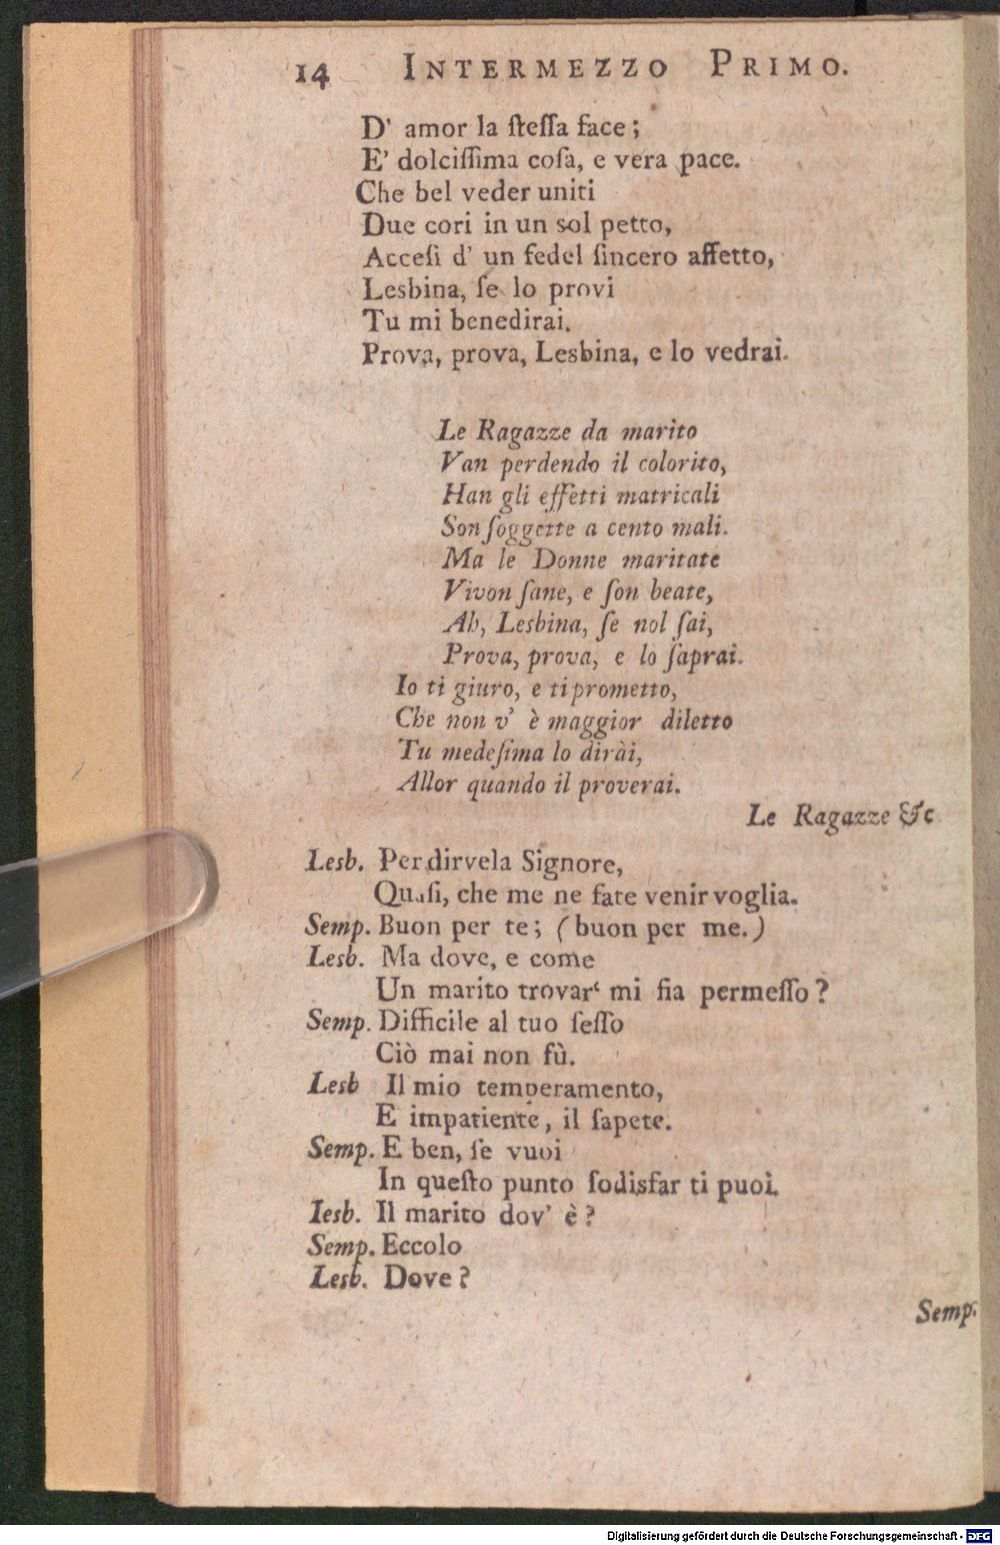 14 INTERMEZZO PRIMO.
D' amor la ſteſſa face;
E' dolciſſima coſa, e vera pace.
Che bel veder uniti
Due cori in un sol petto,
Acceſi d' un fedel ſincero affetto,
Lesbina, ſe lo provi
Tu mi benedirai.
Prova, prova, Lesbina, e lo vedrai.
Le Ragazze da marito
Van perdendo il colorito,
Han gli effetti matricali
Son ſoggette a cento mali.
Ma le Donne maritate
Vivon ſane, e ſon beate,
Ah, Lesbina, ſe nol ſai,
Prova, prova, e lo ſaprai.
Io ti giuro, e ti prometto,
Che non v' è maggior diletto
Tu medeſima lo dirài,
Allor quando il proverai.
Le Ragazze &c
Lesb. Per dirvela Signore,
Quaſi, che me ne fate venir voglia.
Semp. Buon per te; (buon per me.)
Lesb. Ma dove, e come
Un marito trovar‘ mi fia permeſſo?
Semp. Difficile al tuo ſeſſo
Ciò mai non fù.
Lesb Il mio temperamento,
E impatiente, il ſapete.
Semp. E ben, ſe vuoi
In queſto punto ſodisfar ti puoi.
Iesb. Il marito dov' è?
Semp. Eccolo
Lesb. Dove?
Semp.
Digitalisierung gefördert durch die Deutsche Forschungsgemeinschaft - DFG